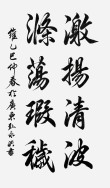 激揚清波
滌蕩瑕穢
歲乙巳仲春於廣東弘永兴書